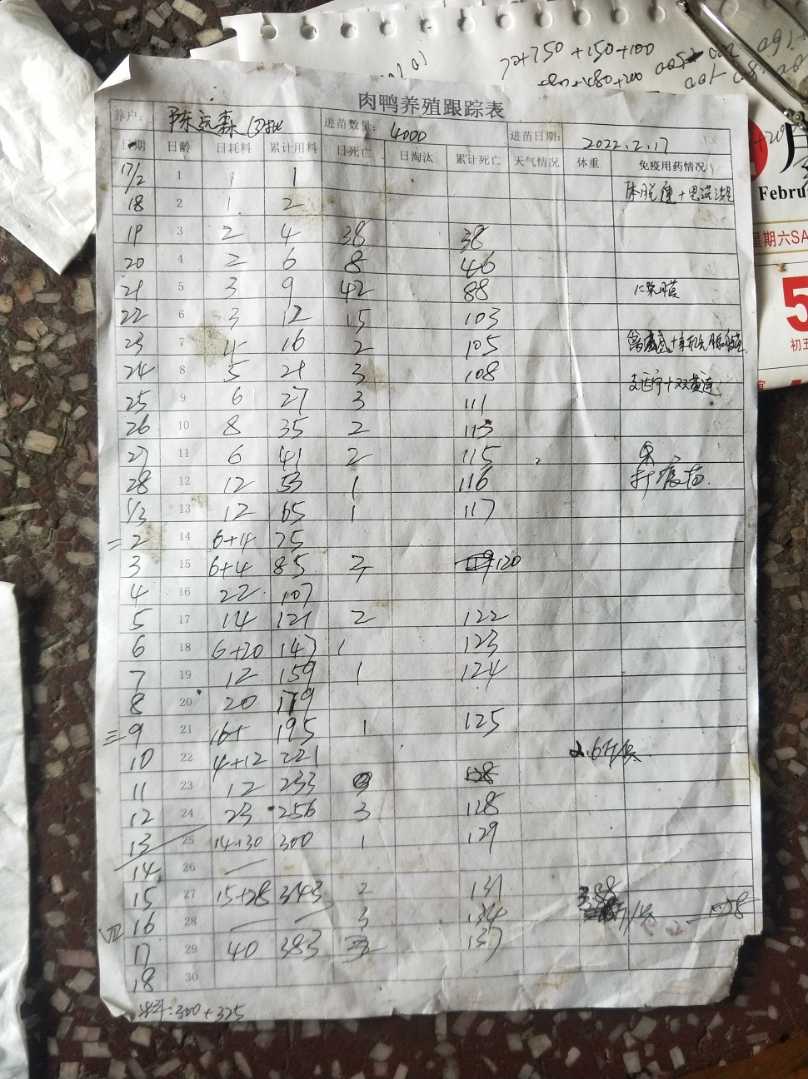 72+750+150+100
肉鸭养殖跟踪表
养户: 陈远森 进苗数量: 4000 进苗日期: 2022.2.17
日期 日龄 日耗料 累计用料 日死亡 日淘汰 累计死亡 天气情况 体重 免疫用药情况
17/2 1 1 1
18 2 1 2
19 3 2 4 38 38
20 4 2 6 8 46
21 5 3 9 42 88
22 6 3 12 15 103
23 7 4 16 2 105
24 8 5 21 3 108
25 9 6 27 3 111
26 10 8 35 2 113
27 11 6 41 2 115
28 12 12 53 1 116 打疫苗
1/3 13 12 65 1 117
2 14 6+4 75
3 15 6+4 85 2 120
4 16 22 107
5 17 14 121 2 122
6 18 6+20 147 1 123
7 19 12 159 1 124
8 20 20 179
三 9 21 16+ 195 1 125
10 22 4+12 221 2.6斤/只
11 23 12 233 128
12 24 23 256 3 128
13 25 14+30 300 1 129
14 26 —
15 27 15+28 343 2 131 3.88
16 28 — — 3 134 斤/只
17 29 40 383 3 137
18 30
300+325
Febru
星期六SA
5
初五